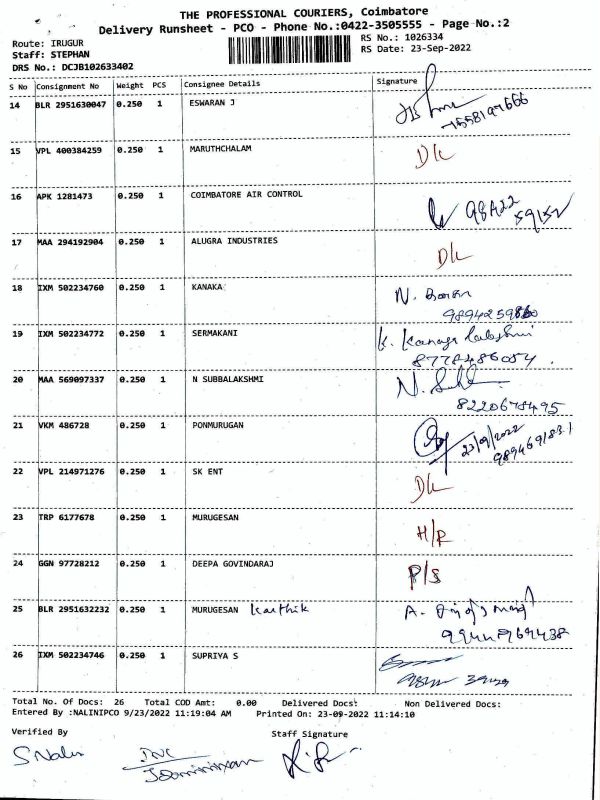 THE PROFESSIONAL COURIERS, Coimbatore
Delivery Runsheet - PCO - Phone No.:0422-3505555 - Page No.:2
Route: IRUGUR
Staff: STEPHAN
DRS No.: DCJB102633402
RS No.: 1026334
RS Date: 23-Sep-2022
S No Consignment No Weight PCS Consignee Details Signature
14 BLR 2951630047 0.250 1 ESWARAN J
7558197666
15 VPL 400384259 0.250 1 MARUTHCHALAM D/L
16 APK 1281473 0.250 1 COIMBATORE AIR CONTROL
17 MAA 294192904 0.250 1 ALUGRA INDUSTRIES D/L
18 IXM 502234760 0.250 1 KANAKA N.
19 IXM 502234772 0.250 1 SERMAKANI K.
8778486054.
20 MAA 569097337 0.250 1 N SUBBALAKSHMI N.
8220678495
21 VKM 486728 0.250 1 PONMURUGAN
23/9/2022
9894691831
22 VPL 214971276 0.250 1 SK ENT D/L
23 TRP 6177678 0.250 1 MURUGESAN H/R
24 GGN 97728212 0.250 1 DEEPA GOVINDARAJ P/S
25 BLR 2951632232 0.250 1 MURUGESAN Karthik A.
26 IXM 502234746 0.250 1 SUPRIYA S
Total No. Of Docs: 26 Total COD Amt: 0.00 Delivered Docs: Non Delivered Docs:
Entered By :NALINIPCO 9/23/2022 11:19:04 AM Printed On: 23-09-2022 11:14:10
Verified By
Staff Signature